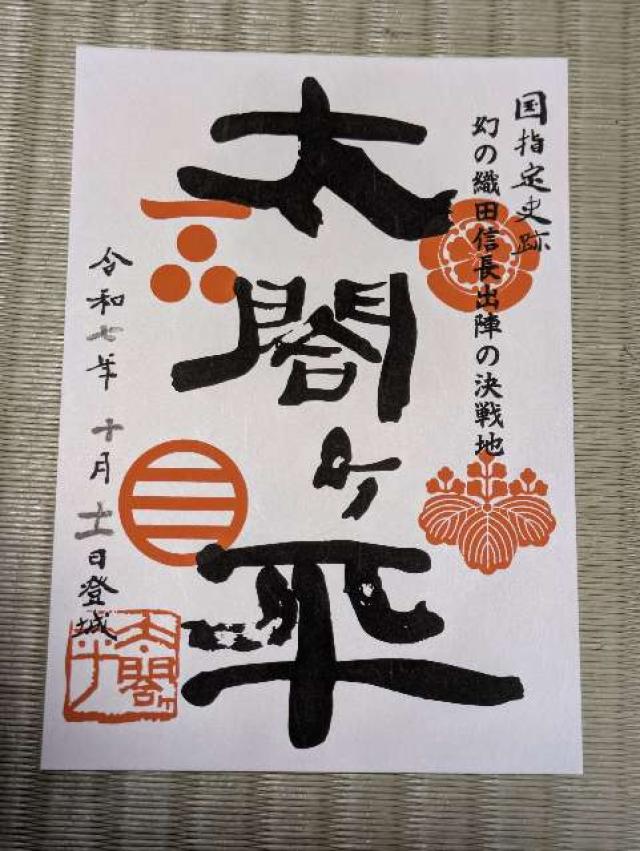 国指定史跡
幻の織田信長出陣の決戦地
太閤ヶ平
令和七年 十月十一日登城
太閤ヶ平